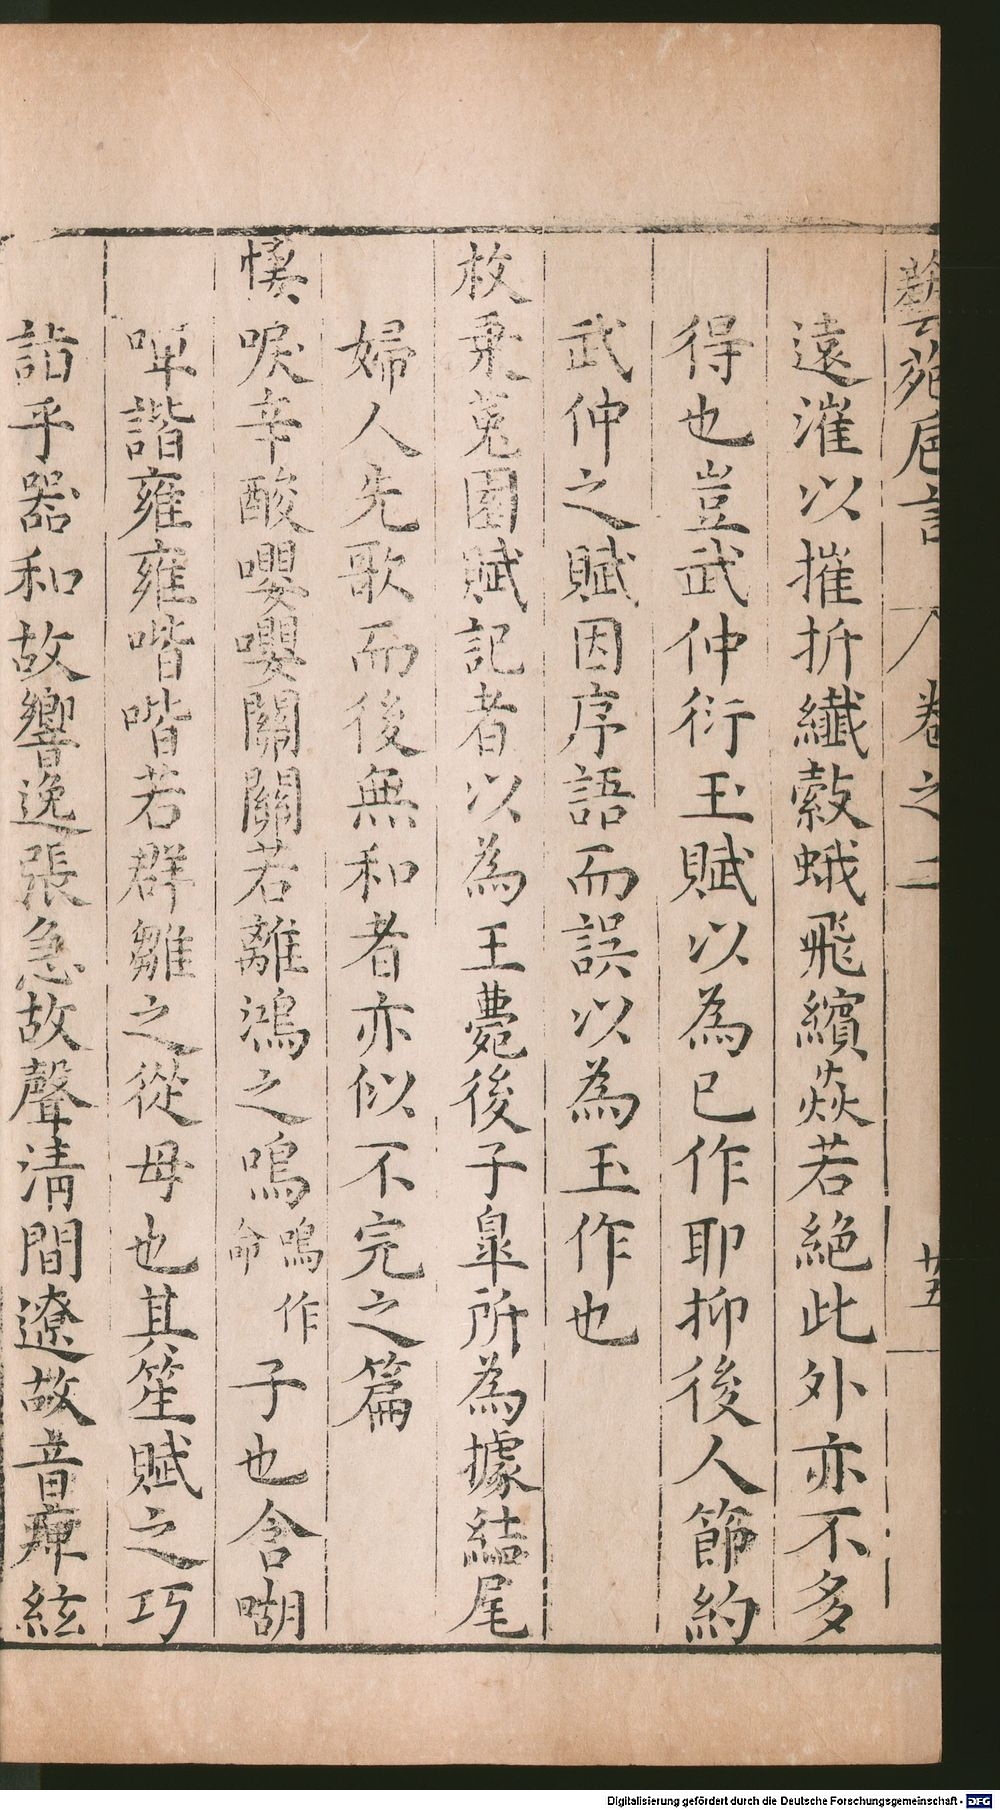 藝苑卮言 卷之二 廿五
遠漼以摧折纎縠蛾飛繽焱若絶此外亦不多
得也豈武仲衍玉賦以為已作耶抑後人節約
武仲之賦因序語而誤以為玉作也
枚乗菟園賦記者以為王薨後子臯所為據結尾
婦人先歌而後無和者亦似不完之篇
唳辛酸嚶嚶關關若離鴻之鳴鳴作命子也含㗅
嘽諧雍雍喈喈若群雛之從母也其笙賦之巧
詣乎器和故響逸張急故聲清間遼故音庳絃
Digitalisierung gefördert durch die Deutsche Forschungsgemeinschaft - DFG